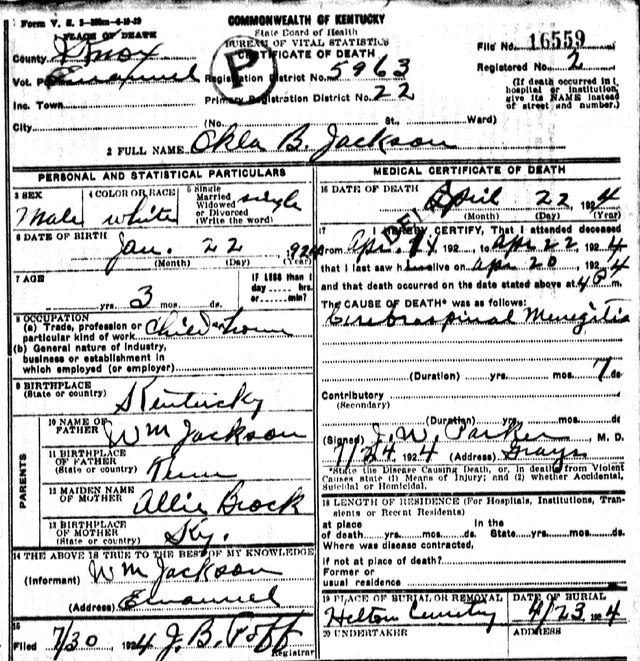 Form V. S.
COMMONWEALTH OF KENTUCKY
State Board of Health
BUREAU OF VITAL STATISTICS
CERTIFICATE OF DEATH
1 PLACE OF DEATH
County Knox
Vot. Pct. Emanuel
Inc. Town
City
P
Registration District No. 5963
Primary Registration District No. 22
File No. 16559
Registered No. 2
(If death occurred in hospital or institution, give its NAME instead of street and number.)
(No. St., Ward)
2 FULL NAME Okla B. Jackson
PERSONAL AND STATISTICAL PARTICULARS
3 SEX Male
4 COLOR OR RACE white
5 Single Married Widowed or Divorced (Write the word) single
6 DATE OF BIRTH Jan. 22 1924
(Month) (Day) (Year)
7 AGE
IF LESS than 1 day hrs. or min?
yrs. 3 mos. ds.
8 OCCUPATION
(a) Trade, profession or particular kind of work Child
(b) General nature of industry, business or establishment in which employed (or employer)
9 BIRTHPLACE
(State or country) Kentucky
PARENTS
10 NAME OF FATHER Wm Jackson
11 BIRTHPLACE OF FATHER
(State or country) Tenn
12 MAIDEN NAME OF MOTHER Allie Brock
13 BIRTHPLACE OF MOTHER
(State or country) Ky.
14 THE ABOVE IS TRUE TO THE BEST OF MY KNOWLEDGE
(Informant) Wm Jackson
(Address) Emanuel
15
Filed 7/30 1924 J. B. Poff
Registrar
MEDICAL CERTIFICATE OF DEATH
16 DATE OF DEATH April 22 1924
(Month) (Day) (Year)
DELAYED
17 I HEREBY CERTIFY, That I attended deceased
from Apr. 192, to Apr 22 1924
that I last saw h alive on Apr 20 1924
and that death occurred on the date stated above at 4 P m.
The CAUSE OF DEATH* was as follows:
Cerebrospinal Menegitis
(Duration) yrs. mos. 7 ds
Contributory
(Secondary)
(Duration) yrs. mos. ds
(Signed) J. W. Parker M. D.
7/24 1924 (Address) Grays
*State the Disease Causing Death, or, in deaths from Violent Causes state (1) Means of Injury; and (2) whether Accidental, Suicidal or Homicidal.
18 LENGTH OF RESIDENCE (For Hospitals, Institutions, Transients or Recent Residents)
at place of death yrs. mos. ds. In the State yrs. mos. ds.
Where was disease contracted,
if not at place of death?
Former or usual residence
19 PLACE OF BURIAL OR REMOVAL Helton
DATE OF BURIAL 4/23 1924
20 UNDERTAKER
ADDRESS